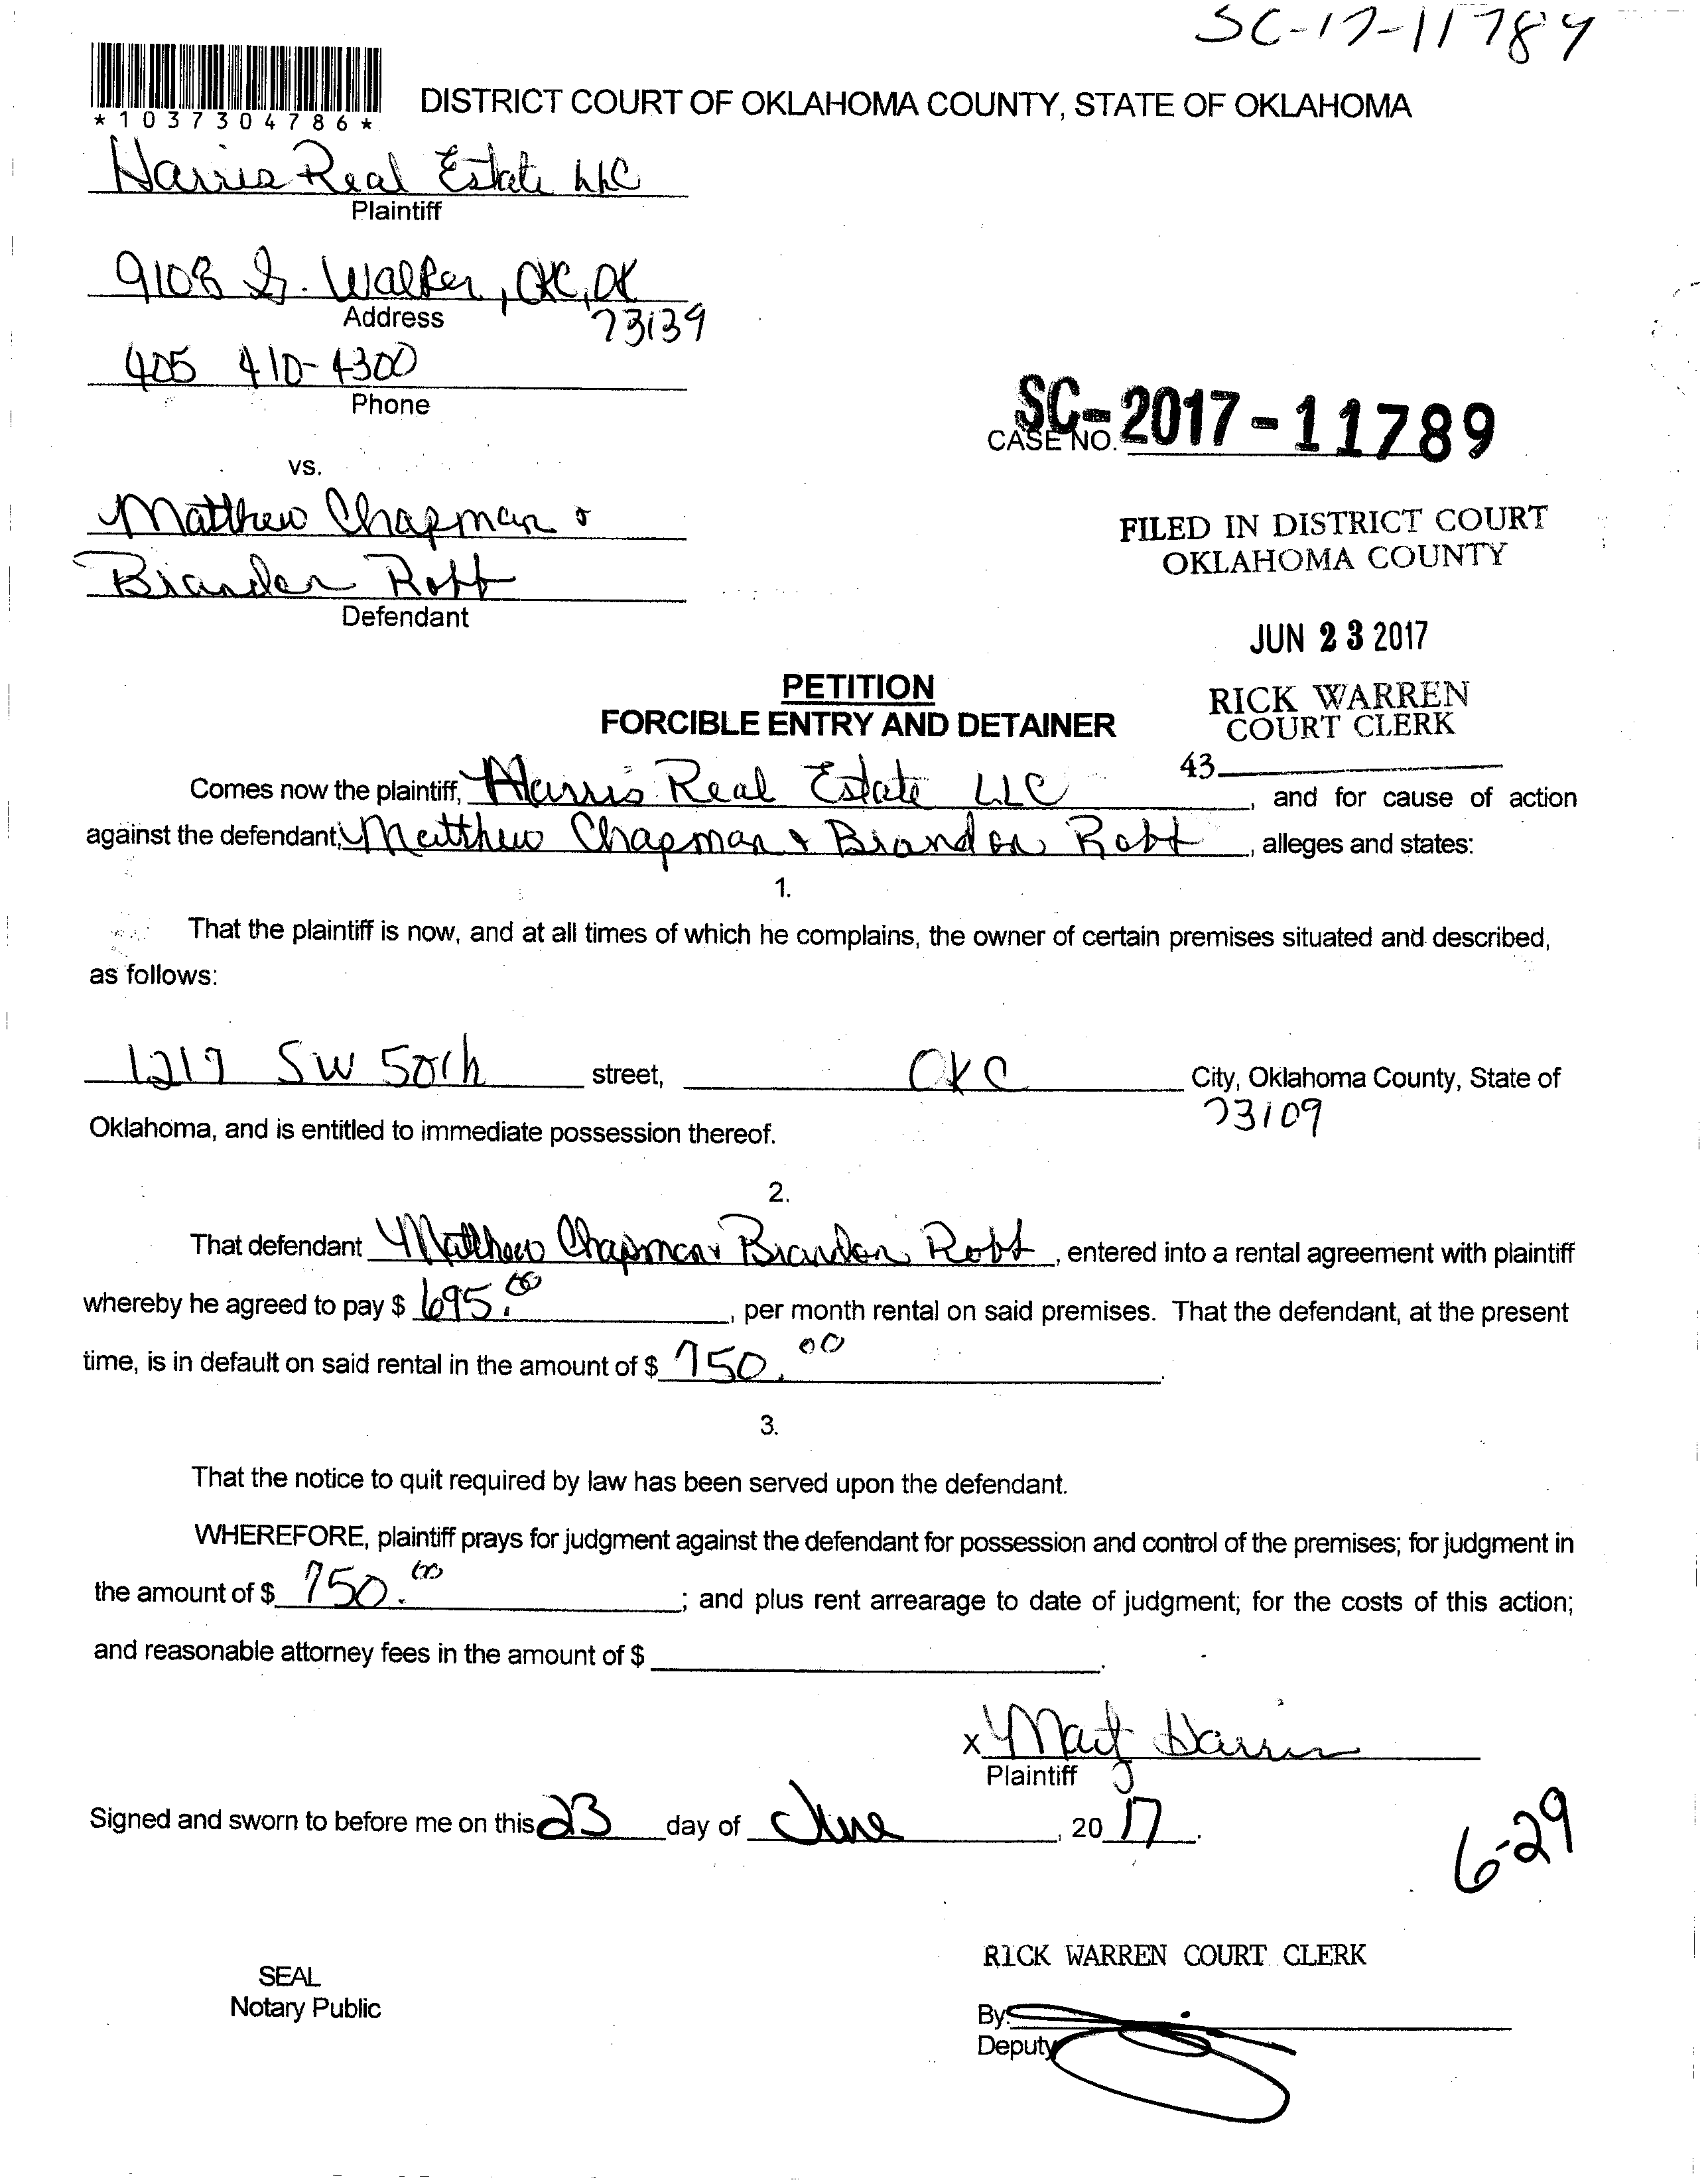 SC-17-11789
*1037304786*
DISTRICT COURT OF OKLAHOMA COUNTY, STATE OF OKLAHOMA
Harris Real Estate LLC
Plaintiff
9108 S. Walker, OKC, OK
73139
Address
405 410-4300
Phone
SC-2017-11789
CASE NO.
vs.
Matthew Chapman &
Brandon Robt
Defendant
FILED IN DISTRICT COURT
OKLAHOMA COUNTY
JUN 23 2017
RICK WARREN
COURT CLERK
43
PETITION
FORCIBLE ENTRY AND DETAINER
Comes now the plaintiff, Harris Real Estate LLC, and for cause of action
against the defendant, Matthew Chapman & Brandon Robt, alleges and states:
1.
That the plaintiff is now, and at all times of which he complains, the owner of certain premises situated and described,
as follows:
1217 SW 50th street, OKC City, Oklahoma County, State of
73109
Oklahoma, and is entitled to immediate possession thereof.
2.
That defendant Matthew Chapman & Brandon Robt, entered into a rental agreement with plaintiff
whereby he agreed to pay $ 695.00, per month rental on said premises. That the defendant, at the present
time, is in default on said rental in the amount of $ 750.00.
3.
That the notice to quit required by law has been served upon the defendant.
WHEREFORE, plaintiff prays for judgment against the defendant for possession and control of the premises; for judgment in
the amount of $ 750.00; and plus rent arrearage to date of judgment; for the costs of this action;
and reasonable attorney fees in the amount of $
x Harris
Plaintiff
Signed and sworn to before me on this 23 day of June, 2017.
6-29
RICK WARREN COURT CLERK
SEAL
Notary Public
By:
Deputy